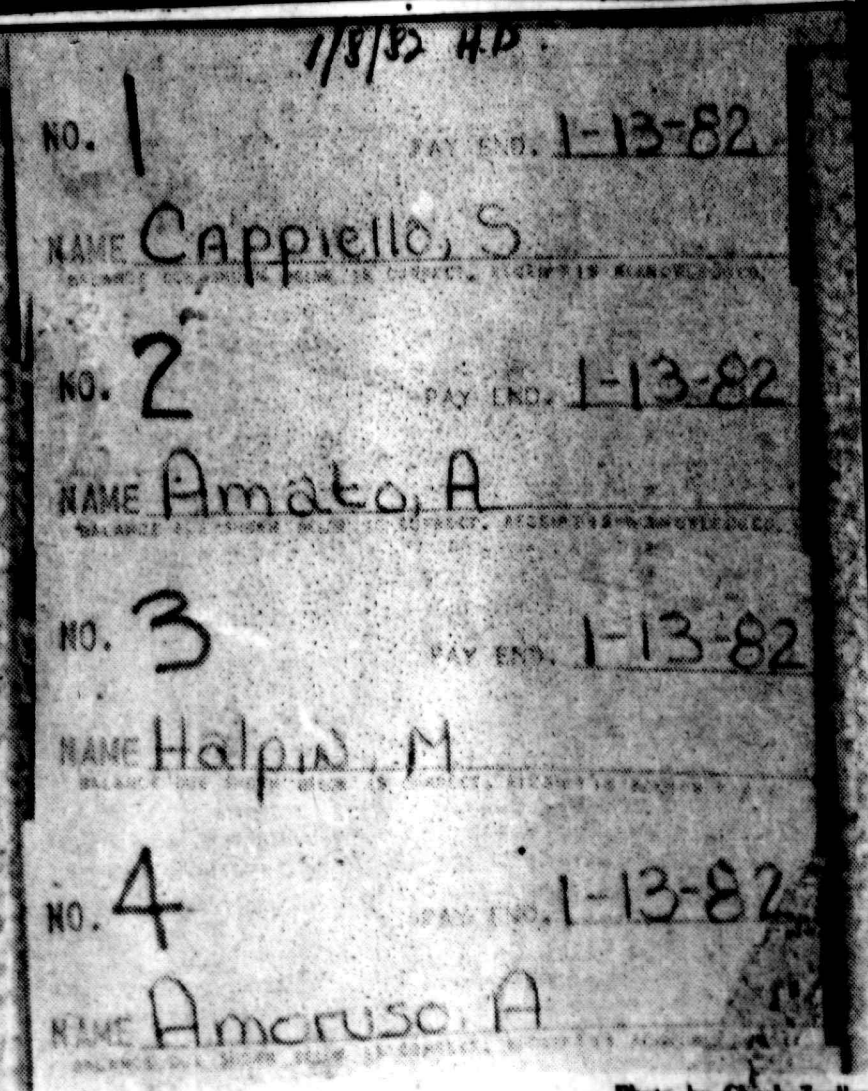 1/8/82 H.D.
NO. 1 PAY END. 1-13-82
NAME Cappiello, S
BALANCE DUE SHOWN BELOW IS CORRECT, RECEIPT IS ACKNOWLEDGED.
NO. 2 PAY END. 1-13-82
NAME Amato, A
BALANCE DUE SHOWN BELOW IS CORRECT, RECEIPT IS ACKNOWLEDGED.
NO. 3 PAY END. 1-13-82
NAME Halpin, M
BALANCE DUE SHOWN BELOW IS CORRECT, RECEIPT IS
NO. 4 PAY END. 1-13-82
NAME Amoruso, A
BALANCE DUE SHOWN BELOW IS CORRECT, RECEIPT IS